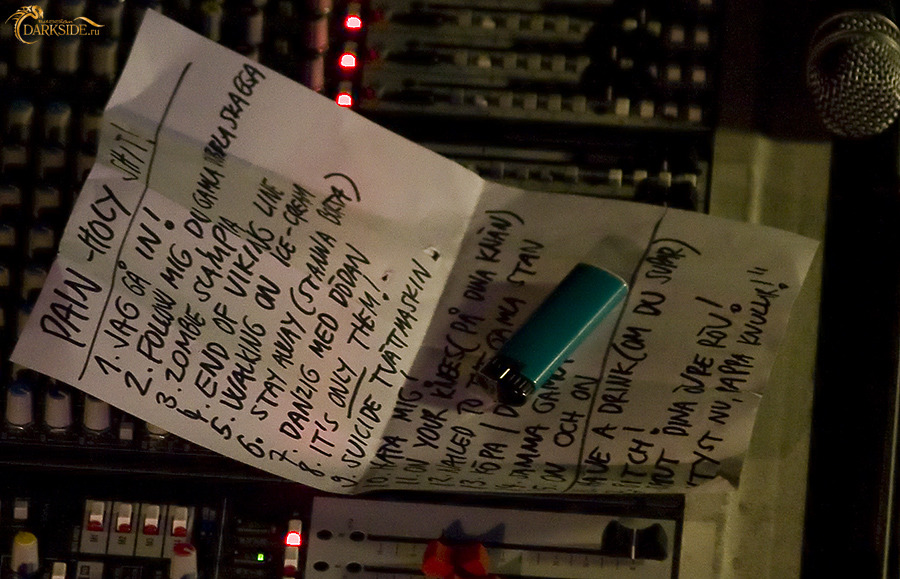 DARKSIDE.ru
PAIN - HOLY SHIT!
1. JAG GÅ IN!
2. FOLLOW MIG DU GAMLA
3. ZOMBIE SCAMPIA
4. END OF VIKING LINE
5. WALKING ON ICE-CREAM
6. STAY AWAY (STANNA BORTA)
7. DANZIG MED DÖDAN
8. IT'S ONLY THEM!
9. SUICIDE TVÄTTMASKIN.
MIG!
11. ON YOUR KNEES (PÅ DINA KNÄN)
TO THE GAMLA STAN
13. KÖPA I
SAMMA GAMMA
ON OCH ON
HAVE A DRINK (OM DU SUPAR)
BITCH!
DINA
TYST NU, JAPPA KNULLA!"